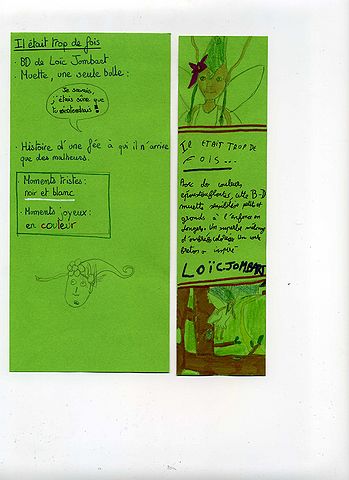 Il était trop de fois
- BD de Loïc Jombart
Muette, une seule bulle :
Je savais,
j'étais sûre que
tu viendrais !
- Histoire d'une fée à qui il n'arrive
que des malheurs.
- Moments tristes :
noir et blanc
- Moments joyeux :
en couleur
Il ETAIT TROP DE
FOIS...
Avec des couleurs
époustouflantes, cette B-D
muette petits et
grands à l'enfance en
songes. Un superbe mélange
d' Un vrai
inspiré
LOÏC JOMBART